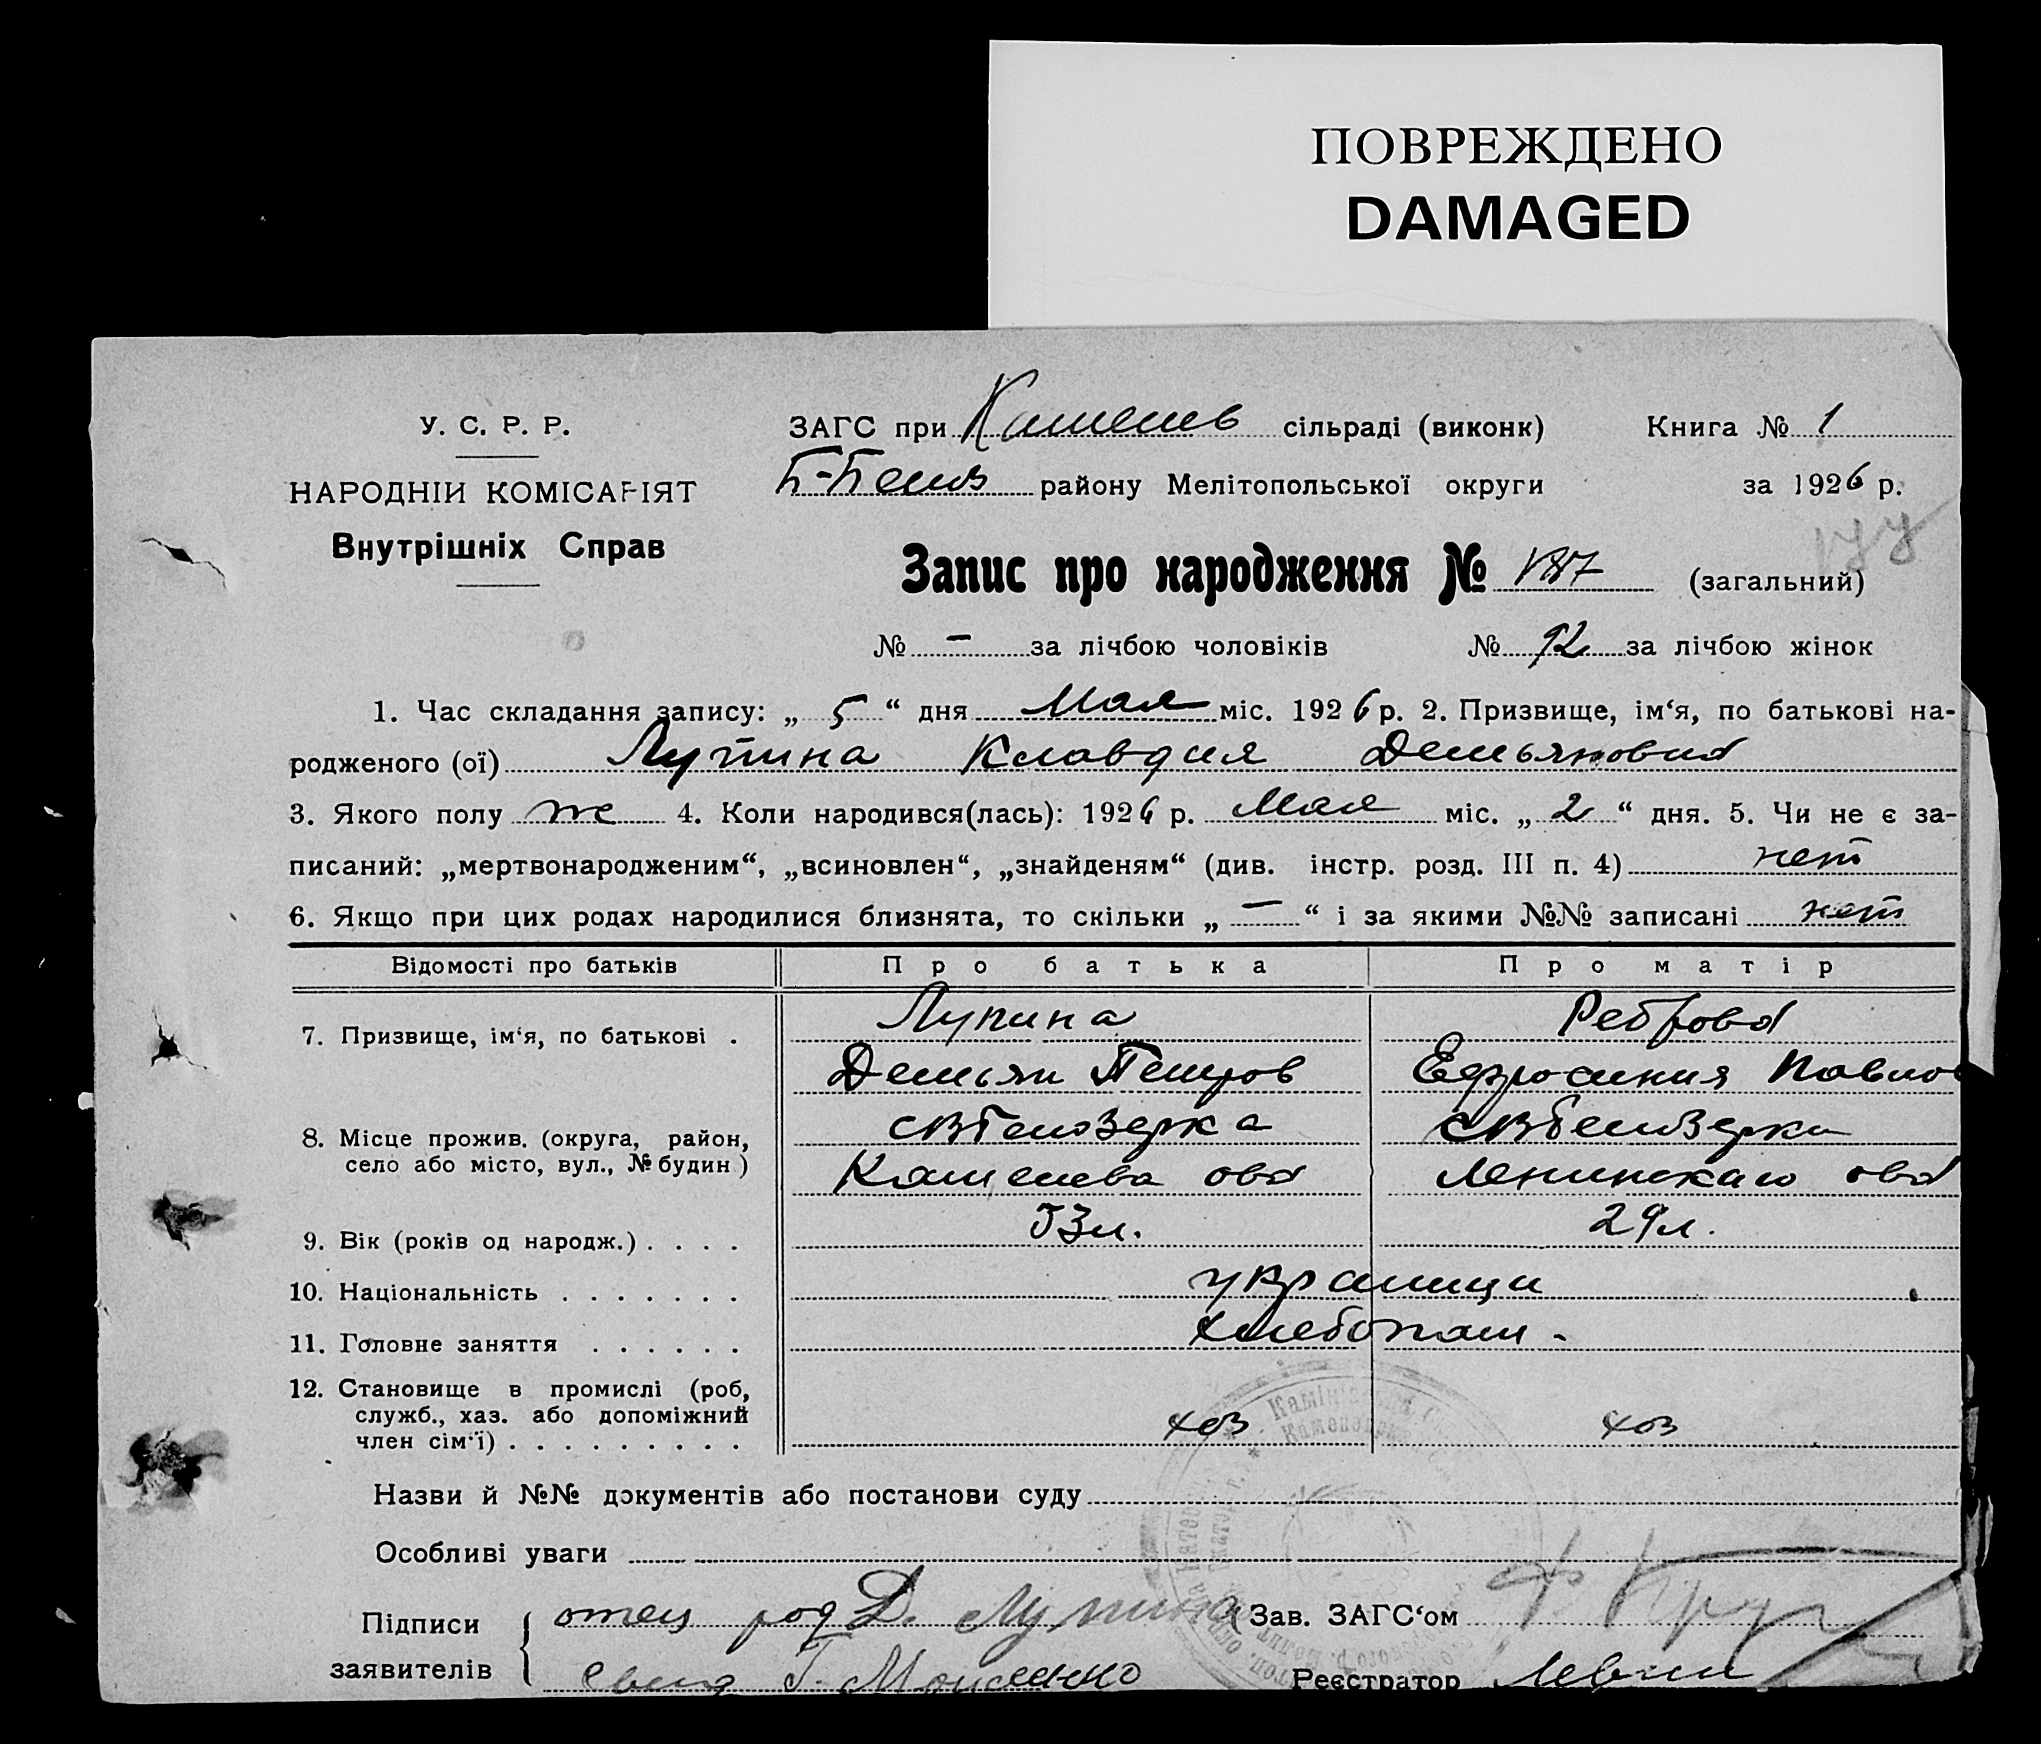 ПОВРЕЖДЕНО
DAMAGED
У. С. Р. Р.
НАРОДНІЙ КОМІСАРІЯТ
Внутрішніх Справ
ЗАГС при сільраді (виконк) Книга № 1
району Мелітопольської округи за 1926 р.
Запис про народження № 187 (загальний)
№ — за лічбою чоловіків № 92 за лічбою жінок
1. Час складання запису: „ 5 “ дня Мая міс. 1926 р. 2. Призвище, ім‘я, по батькові на-
родженого (ої) Лупина Клавдия Демьяновна
3. Якого полу же 4. Коли народився(лась): 1926 р. Мая міс. „ 2 “ дня. 5. Чи не є за-
писаний: „мертвонародженим“, „всиновлен“, „знайденям“ (див. інстр. розд. III п. 4) нет
6. Якщо при цих родах народилися близнята, то скільки „ — “ і за якими №№ записані нет
Відомості про батьків Про батька Про матір
7. Призвище, ім‘я, по батькові . Лупина Реброва
Демьян Петров Ефросиния Павлов
8. Місце прожив. (округа, район,
село або місто, вул., № будин)
Ленинскаго
9. Вік (років од народж.) . . . . 53л. 29л.
10. Національність . . . . . . . украинци
11. Головне заняття . . . . . . хлебопаш.
12. Становище в промислі (роб,
служб., хаз. або допоміжний
член сім‘ї) . . . . . . . . . хоз хоз
Назви й №№ документів або постанови суду
Особливі уваги
Підписи
заявителів
отец Д. Лупина
Зав. ЗАГС‘ом
Г. Моисеенко
Реєстратор